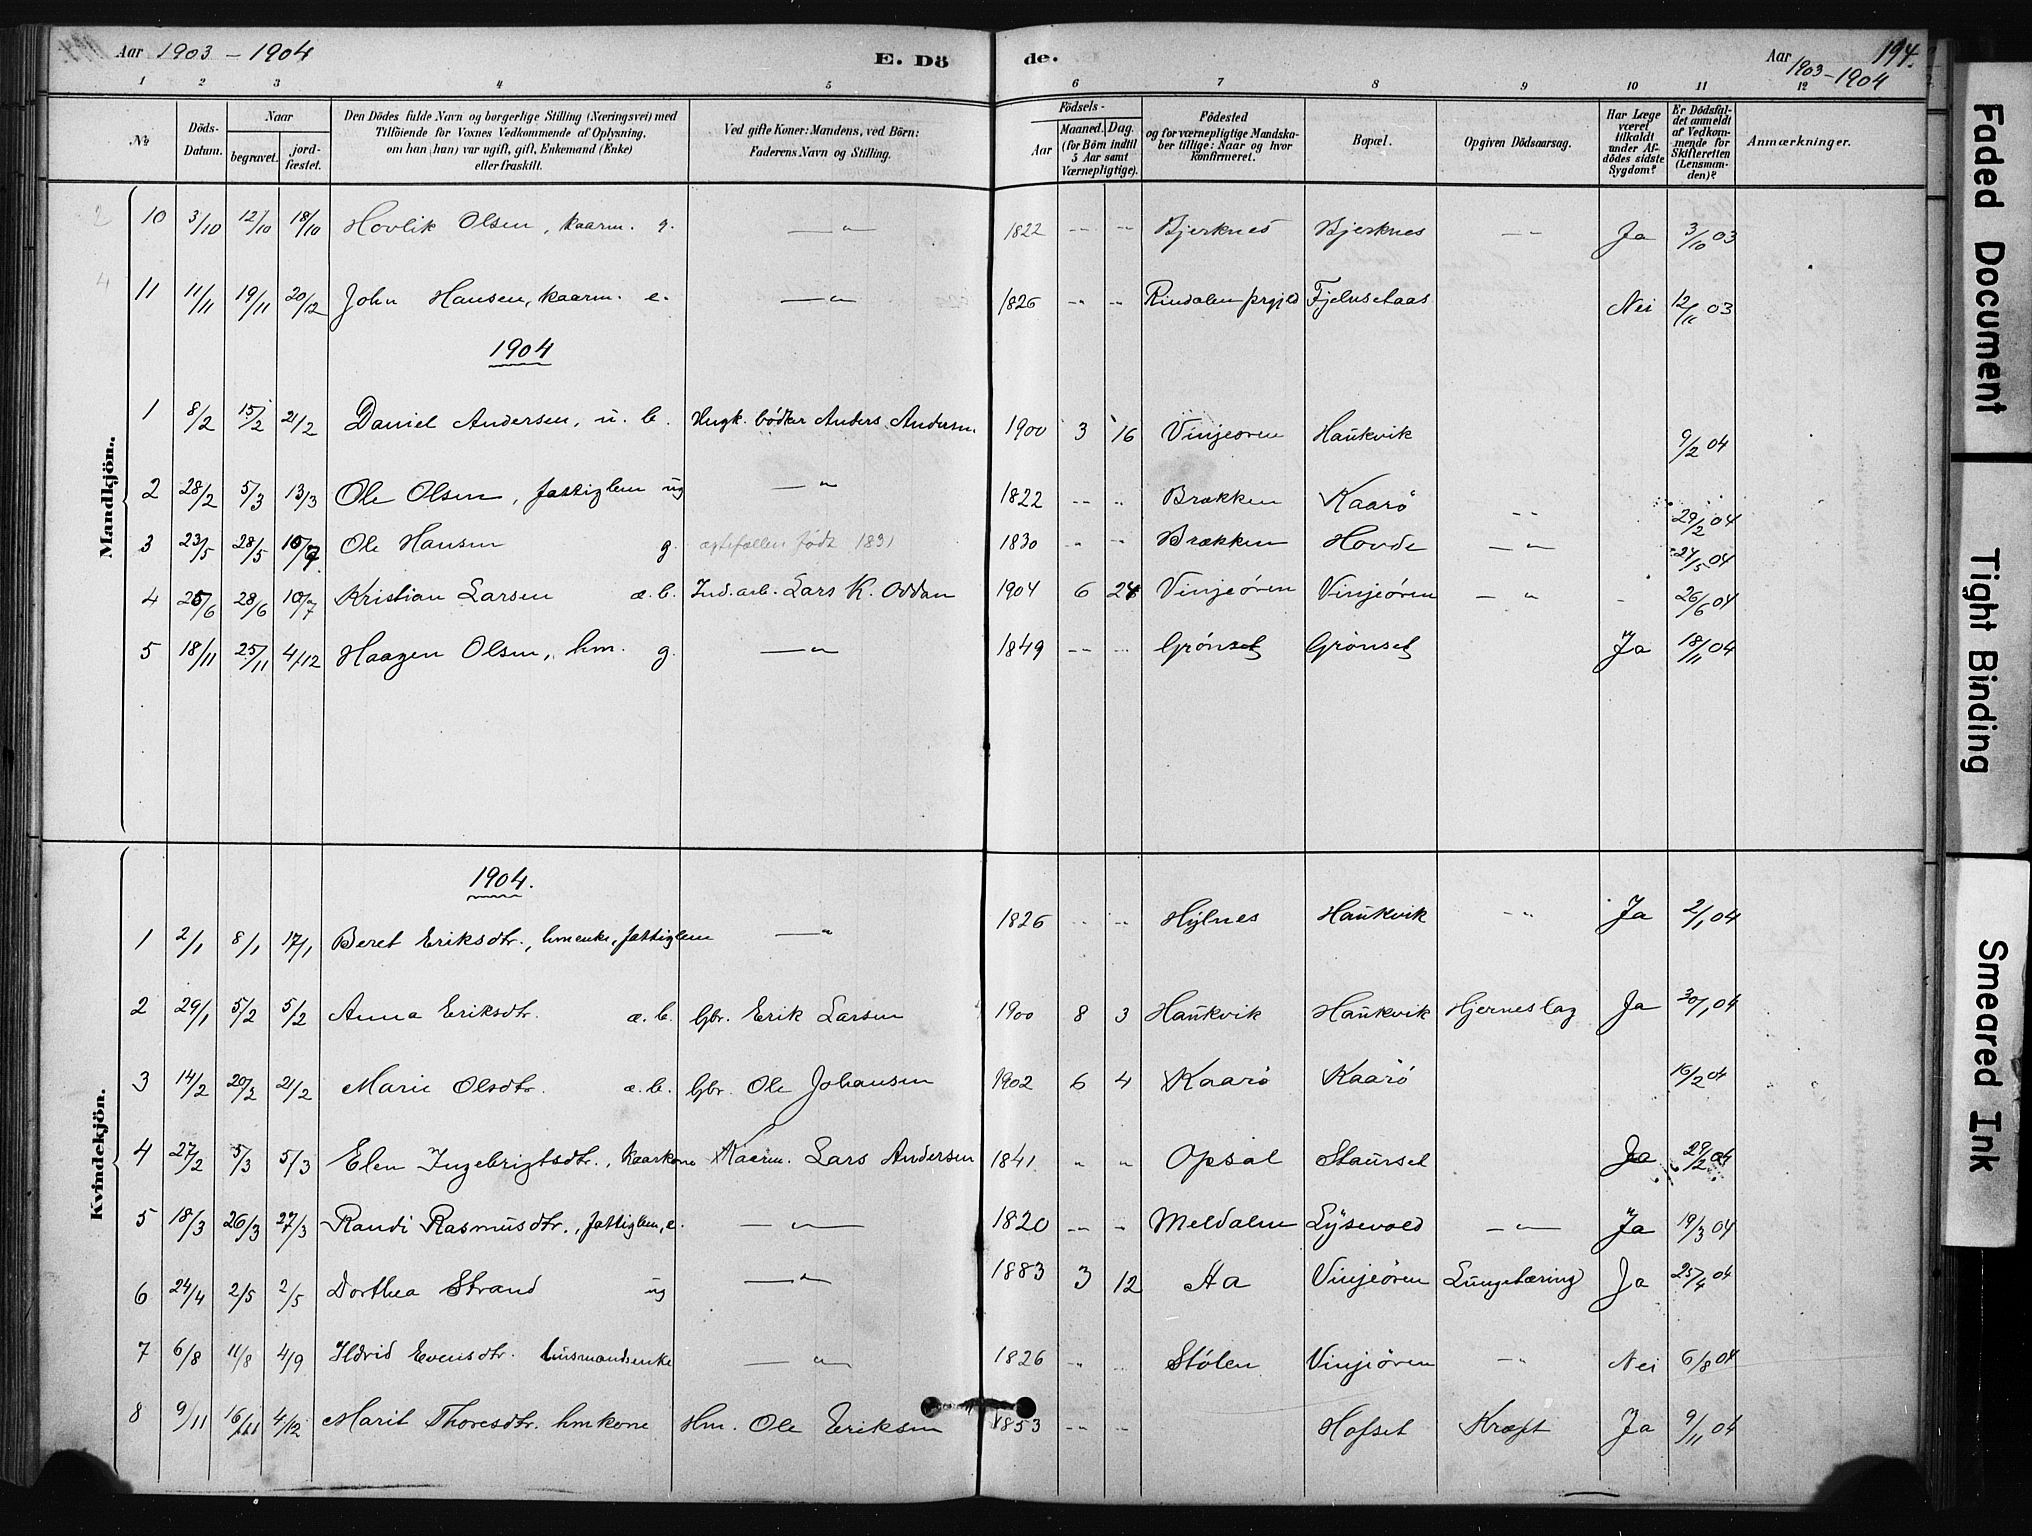 Aar 1903 - 1904 E. Dö de. Aar 1903-1904 194.
1 2 3 4 5 6 7 8 9 10 11 12
No Döds-Datum. Naar begravet. jordfæstet. Den Dödes fulde Navn og borgerlige Stilling (Næringsvei) med Tilföiende for Voxnes Vedkommende af Oplysning, om han (hun) var ugift, gift, Enkemand (Enke) eller fraskilt. Ved gifte Koner: Mandens, ved Börn: Faderens Navn og Stilling. Födsels- Aar Maaned. Dag. (for Börn indtil 5 Aar samt Værnepligtige). Födested og for værnepligtige Mandskaber tillige: Naar og hvor konfirmeret. Bopæl. Opgiven Dödsaarsag. Har Læge været tilkaldt under Afdödes sidste Sygdom? Er Dödsfaldet anmeldt af Vedkommende for Skifteretten (Lensmanden)? Anmærkninger.
Mandkjön.
10 3/10 12/10 18/10 Hovlik Olsen, kaarm. g. —"— 1822 -- -- Bjerknes Bjerknes —"— Ja 3/10 03
11 11/11 19/11 20/12 John Hansen, kaarm. e. —"— 1826 " " Rindalen prgjld Fjelnsetaas Nei 12/11 03
1904
1 8/2 15/2 21/2 Daniel Andersen, u. b. Ungk. bödker Anders Andersen. 1900 3 16 Vinjeøren Haukvik 9/2 04
2 28/2 5/3 13/3 Ole Olsen, fattiglem ug —"— 1822 -- " Brækken Kaarø - - 29/2 04
3 23/5 28/5 10/7 Ole Hansen g. ægtefællen født 1831 1830 " " Brækken Hovde —"— 24/5 04
4 26/6 28/6 10/7 Kristian Larsen æ. b. Ind.arb. Lars K. Oddan 1904 6 24 Vinjeøren Vinjeøren —"— - 26/6 04
5 18/11 25/11 4/12 Haagen Olsen, hm. g. —"— 1849 -- -- Grønset Grønset Ja 18/11 04
Kvindekjön.
1904.
1 2/1 8/1 17/1 Beret Eriksdtr., hmenke, fattiglem —"— 1826 -- " Hylnes Haukvik - " Ja 2/1 04
2 29/1 5/2 5/2 Anna Eriksdtr. æ. b. Gbr. Erik Larsen 1900 8 3 Haukvik Haukvik Hjerneslag Ja 30/1 04
3 14/2 20/2 21/2 Marie Olsdtr. æ. b. Gbr. Ole Johansen 1902 6 4 Kaarø Kaarø 16/2 04
4 27/2 5/3 5/3 Elen Ingebrigtsdtr., kaarkone Kaarm. Lars Andersen 1841 " " Opsal Staurset Ja 29/2 04
5 18/3 26/3 27/3 Randi Rasmusdtr., fattiglem, e. —"— 1820 -- " Meldalen Lysevold —"— Ja 19/3 04
6 24/4 2/5 2/5 Dorthea Strand ug —"— 1883 3 12 Aa Vinjeøren Lungetæring Ja 25/4 04
7 6/8 11/8 4/9 Ildrid Evensdtr. husmandsenke —"— 1826 " " Stølen Vinjeøren - " Nei 6/8 04
8 9/11 16/11 4/12 Marit Thoresdtr. hmkone Hm. Ole Eriksen 1853 -- " Hofset Kræft Ja 9/11 04
Faded Document
Tight Binding
Smeared Ink